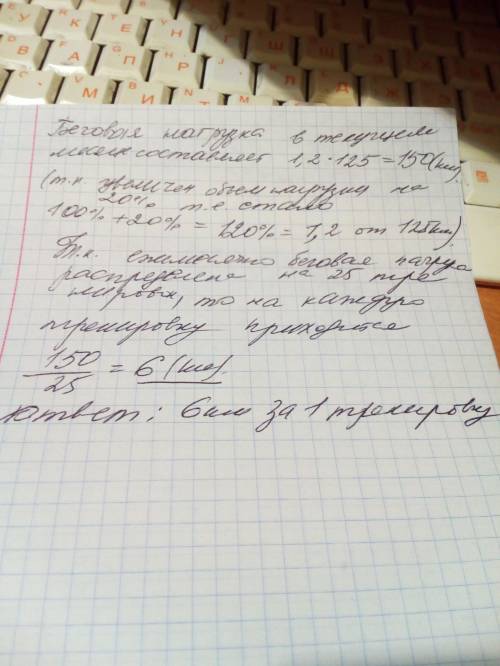 У К Е Н Г Ш Щ З
В А П Р О Л Д Ж
Ч С М И Т Ь Б Ю
Беговая нагрузка в текущем
месяце составляет 1,2 · 125 = 150 (км)
(т.к. увеличен объем нагрузки на
20% т.е. стало
100% + 20% = 120% = 1,2 от 125 км).
Т.к. ежемесячно беговая нагрузка
распределена на 25 тре
нировок, то на каждую
тренировку приходится
150
25
= 6 (км).
Ответ: 6 км за 1 тренировку